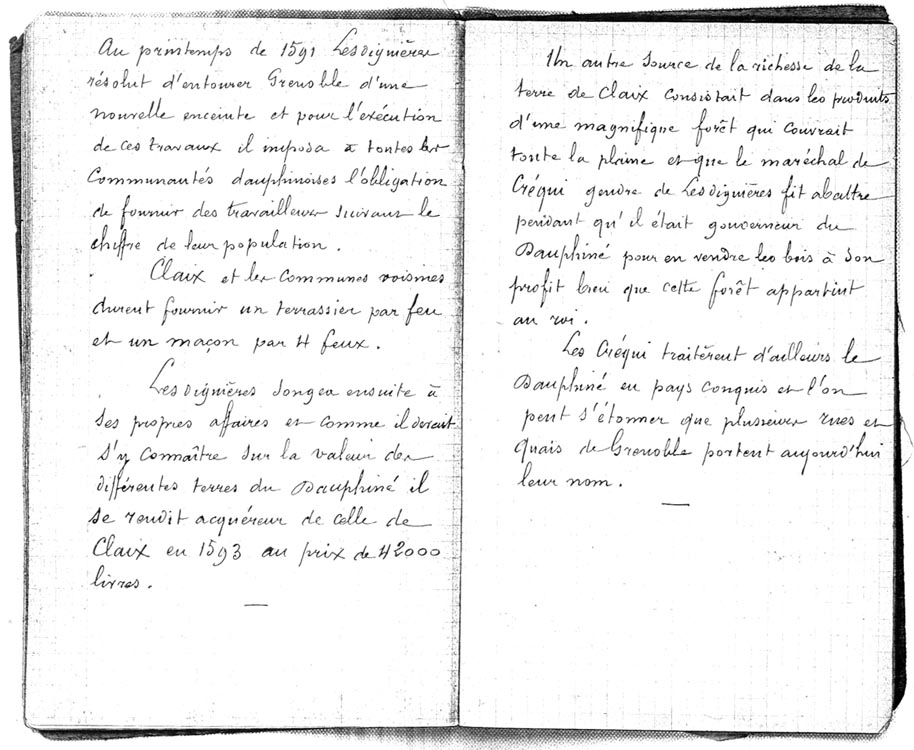 Au printemps de 1591 Lesdiguières
résolut d'entourer Grenoble d'une
nouvelle enceinte et pour l'exécution
de ces travaux il imposa à toutes les
Communautés dauphinoises l'obligation
de fournir des travailleurs suivant le
chiffre de leur population.
Claix et les communes voisines
durent fournir un terrassier par feu
et un maçon par 4 feux.
Lesdiguières songea ensuite à
ses propres affaires et comme il devait
s'y connaître sur la valeur des
différentes terres du Dauphiné il
se rendit acquéreur de celle de
Claix en 1593 au prix de 42000
livres.
Un autre source de la richesse de la
terre de Claix consistait dans les produits
d'une magnifique forêt qui couvrait
toute la plaine et que le maréchal de
Créqui gendre de Lesdiguières fit abattre
pendant qu'il était gouverneur du
Dauphiné pour en vendre les bois à son
profit bien que cette forêt appartint
au roi.
Les Créqui traitèrent d'ailleurs le
Dauphiné en pays conquis et l'on
peut s'étonner que plusieurs rues et
quais de Grenoble portent aujourd'hui
leur nom.